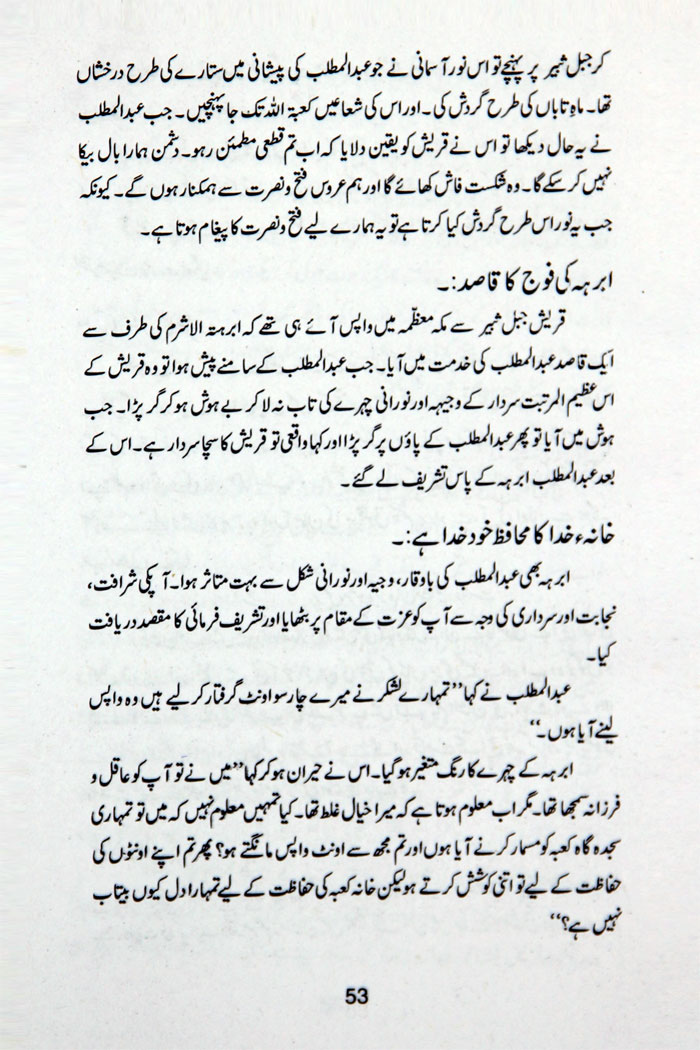 کر جبل شبیر پر پہنچے تو اس نور آسمانی نے جو عبدالمطلب کی پیشانی میں ستارے کی طرح درخشاں
تھا۔ ماہِ تاباں کی طرح گردش کی۔ اور اس کی شعاعیں کعبۃ اللہ تک جا پہنچیں۔ جب عبدالمطلب
نے یہ حال دیکھا تو اس نے قریش کو یقین دلایا کہ اب تم قطعی مطمئن رہو۔ دشمن ہمارا بال بیکا
نہیں کر سکے گا۔ وہ شکست فاش کھائے گا اور ہم عروس فتح و نصرت سے ہمکنار ہوں گے۔ کیونکہ
جب یہ نور اس طرح گردش کیا کرتا ہے تو یہ ہمارے لیے فتح و نصرت کا پیغام ہوتا ہے۔
ابرہہ کی فوج کا قاصد:۔
قریش جبل شبیر سے مکہ معظّمہ میں واپس آئے ہی تھے کہ ابرہتہ الاشرم کی طرف سے
ایک قاصد عبدالمطلب کی خدمت میں آیا۔ جب عبدالمطلب کے سامنے پیش ہوا تو وہ قریش کے
اس عظیم المرتبت سردار کے وجیہہ اور نورانی چہرے کی تاب نہ لا کر بے ہوش ہو کر گر پڑا۔ جب
ہوش میں آیا تو پھر عبدالمطلب کے پاؤں پر گر پڑا اور کہا واقعی تو قریش کا سچا سردار ہے۔ اس کے
بعد عبدالمطلب ابرہہ کے پاس تشریف لے گئے۔
خانہء خدا کا محافظ خود خدا ہے:۔
ابرہہ بھی عبدالمطلب کی باوقار، وجیہ اور نورانی شکل سے بہت متاثر ہوا۔ آپکی شرافت،
نجابت اور سرداری کی وجہ سے آپ کو عزت کے مقام پر بٹھایا اور تشریف فرمائی کا مقصد دریافت
کیا۔
عبدالمطلب نے کہا ”تمہارے لشکر نے میرے چار سو اونٹ گرفتار کر لیے ہیں وہ واپس
لینے آیا ہوں۔“
ابرہہ کے چہرے کا رنگ متغیر ہو گیا۔ اس نے حیران ہو کر کہا ”میں نے تو آپ کو عاقل و
فرزانہ سمجھا تھا۔ مگر اب معلوم ہوتا ہے کہ میرا خیال غلط تھا۔ کیا تمہیں معلوم نہیں کہ میں تو تمہاری
سجدہ گاہ کعبہ کو مسمار کرنے آیا ہوں اور تم مجھ سے اونٹ واپس مانگتے ہو؟ پھر تم اپنے اونٹوں کی
حفاظت کے لیے تو اتنی کوشش کرتے ہو لیکن خانہ کعبہ کی حفاظت کے لیے تمہارا دل کیوں بیتاب
نہیں ہے؟“
53